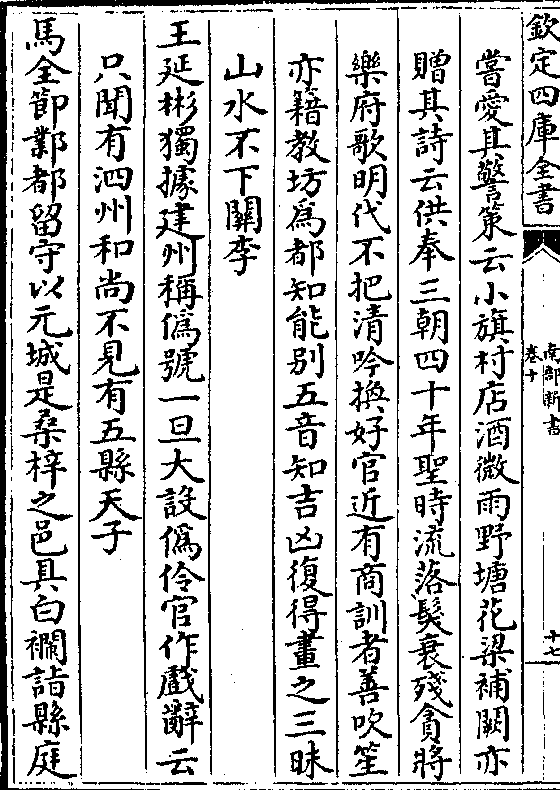 欽定四庫全書
南部新書
卷十
十七
嘗愛其警策云小旗村店酒微雨野塘花梁補闕亦
贈其詩云供奉三朝四十年聖時流落髮衰殘貪將
樂府歌明代不把清吟換好官近有商訓者善吹笙
亦籍教坊為都知能别五音知吉凶復得畫之三昧
山水不下關李
王延彬獨據建州稱僞號一旦大設僞伶官作戲辭云
只聞有泗州和尚不見有五縣天子
馬全節鄴都留守以元城是桑梓之邑具白襴詣縣庭